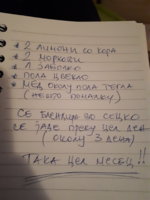 * 2 ЛИМОНИ СО КОРА
* 2 МОРКОВИ
* 1 ЈАБОЛКО
* ПОЛА ЦВЕКЛО
* МЕД ОКОЛУ ПОЛА ТЕГЛА
(НЕШТО ПОМАЛКУ)
СЕ БЛЕНДИРА ВО СЕЦКО
СЕ ЈАДЕ ПРЕКУ ЦЕЛ ДЕН
(ОКОЛУ 3 ДЕНА)
ТАКА ЦЕЛ МЕСЕЦ!!